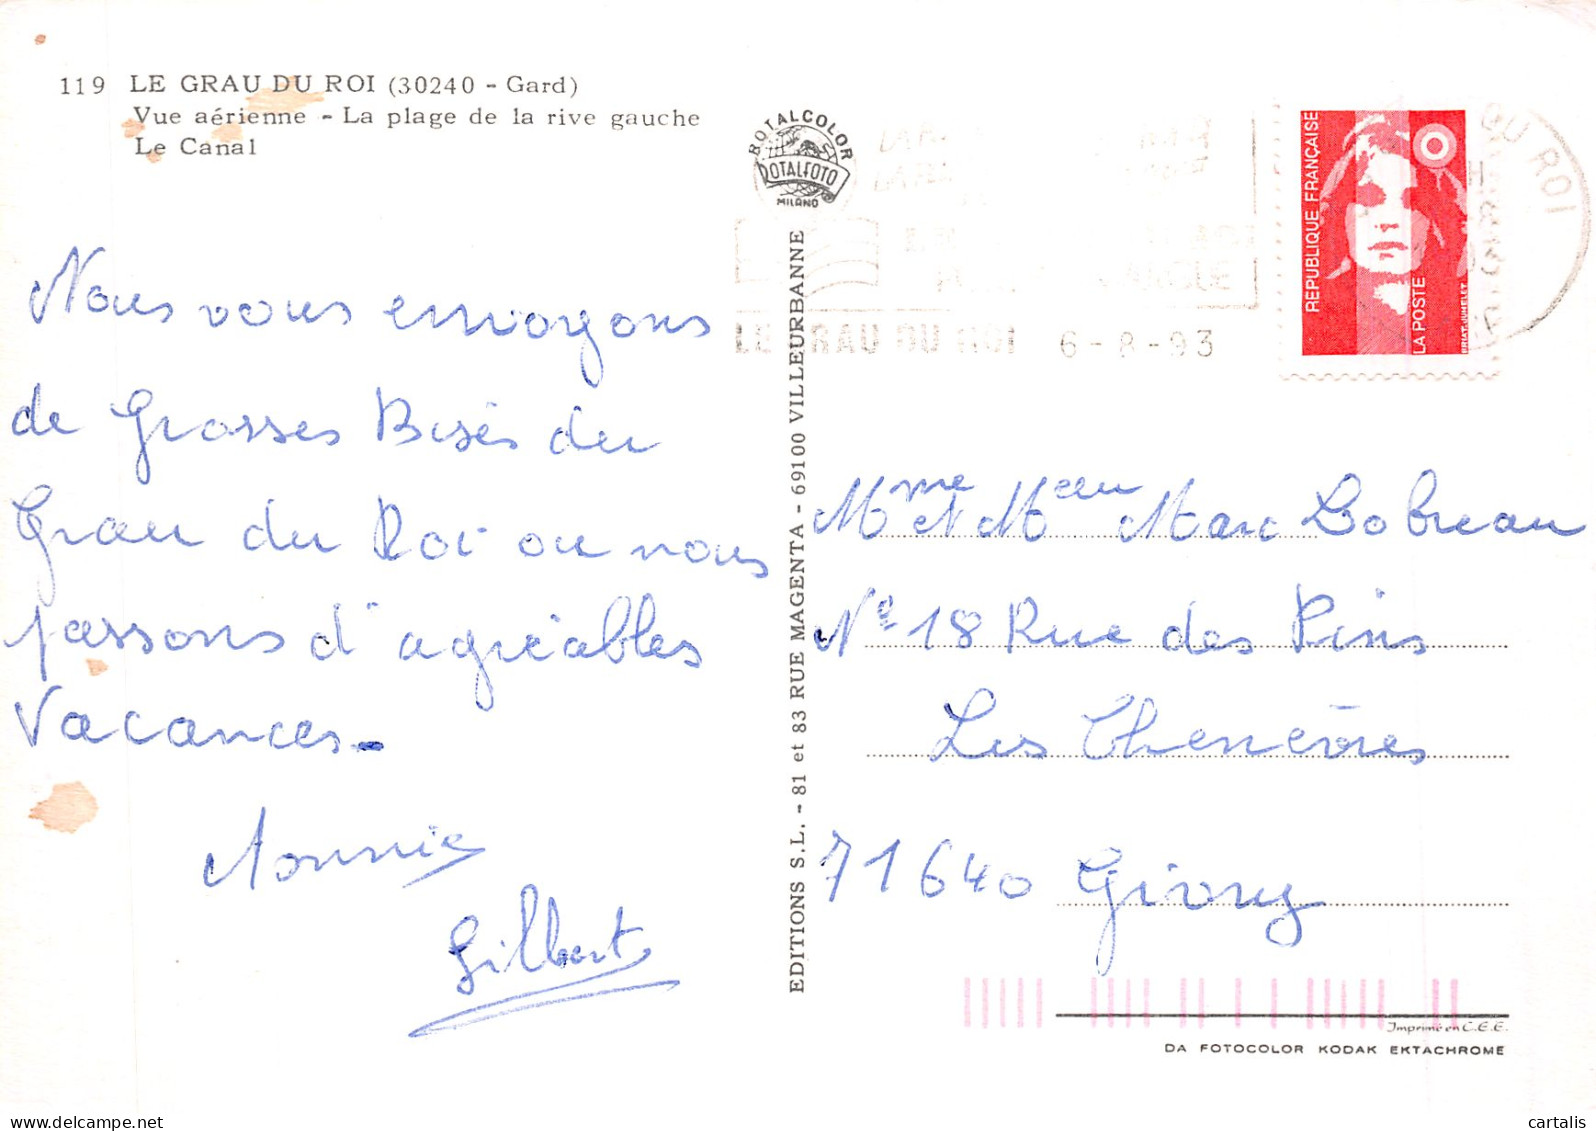 119 LE GRAU DU ROI (30240 - Gard)
Vue aérienne - La plage de la rive gauche
Le Canal
BOTALCOLOR
ROTALFOTO
MILANO
LE GRAU DU ROI 6-8-93
DU ROI
REPUBLIQUE FRANÇAISE
LA POSTE
BRIAT.JUMELET
Nous vous envoyons
de Grosses Bisés du
Grau du Roi ou nous
passons d'agréables
Vacances.
Gilbert
EDITIONS S.L. - 81 et 83 RUE MAGENTA - 69100 VILLEURBANNE
Mme et Mr Marc Lobreau
N° 18 Rue des Pins
Les Chenèvres
71640 Givry
Imprimé en C.E.E.
DA FOTOCOLOR KODAK EKTACHROME
cartalis
www.delcampe.net